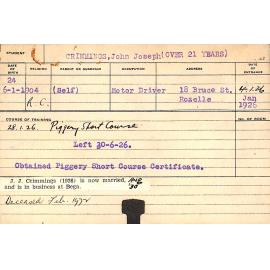 STUDENT
CRIMMINGS, John Joseph (OVER 21 YEARS)
DATE OF BIRTH RELIGION PARENT OR GUARDIAN OCCUPATION ADDRESS DATE OF ENTRANCE
24
6-1-1904 (Self) Motor Driver 18 Bruce St. 4.1.26
R.C. Rozelle Jan
1926
COURSE OF TRAINING
28.1.26. Piggery Short Course
Left 30-6-26.
Obtained Piggery Short Course Certificate.
J. J. Crimmings (1926) is now married, Aug
and is in business at Bega. '30
Deceased Feb. 1972